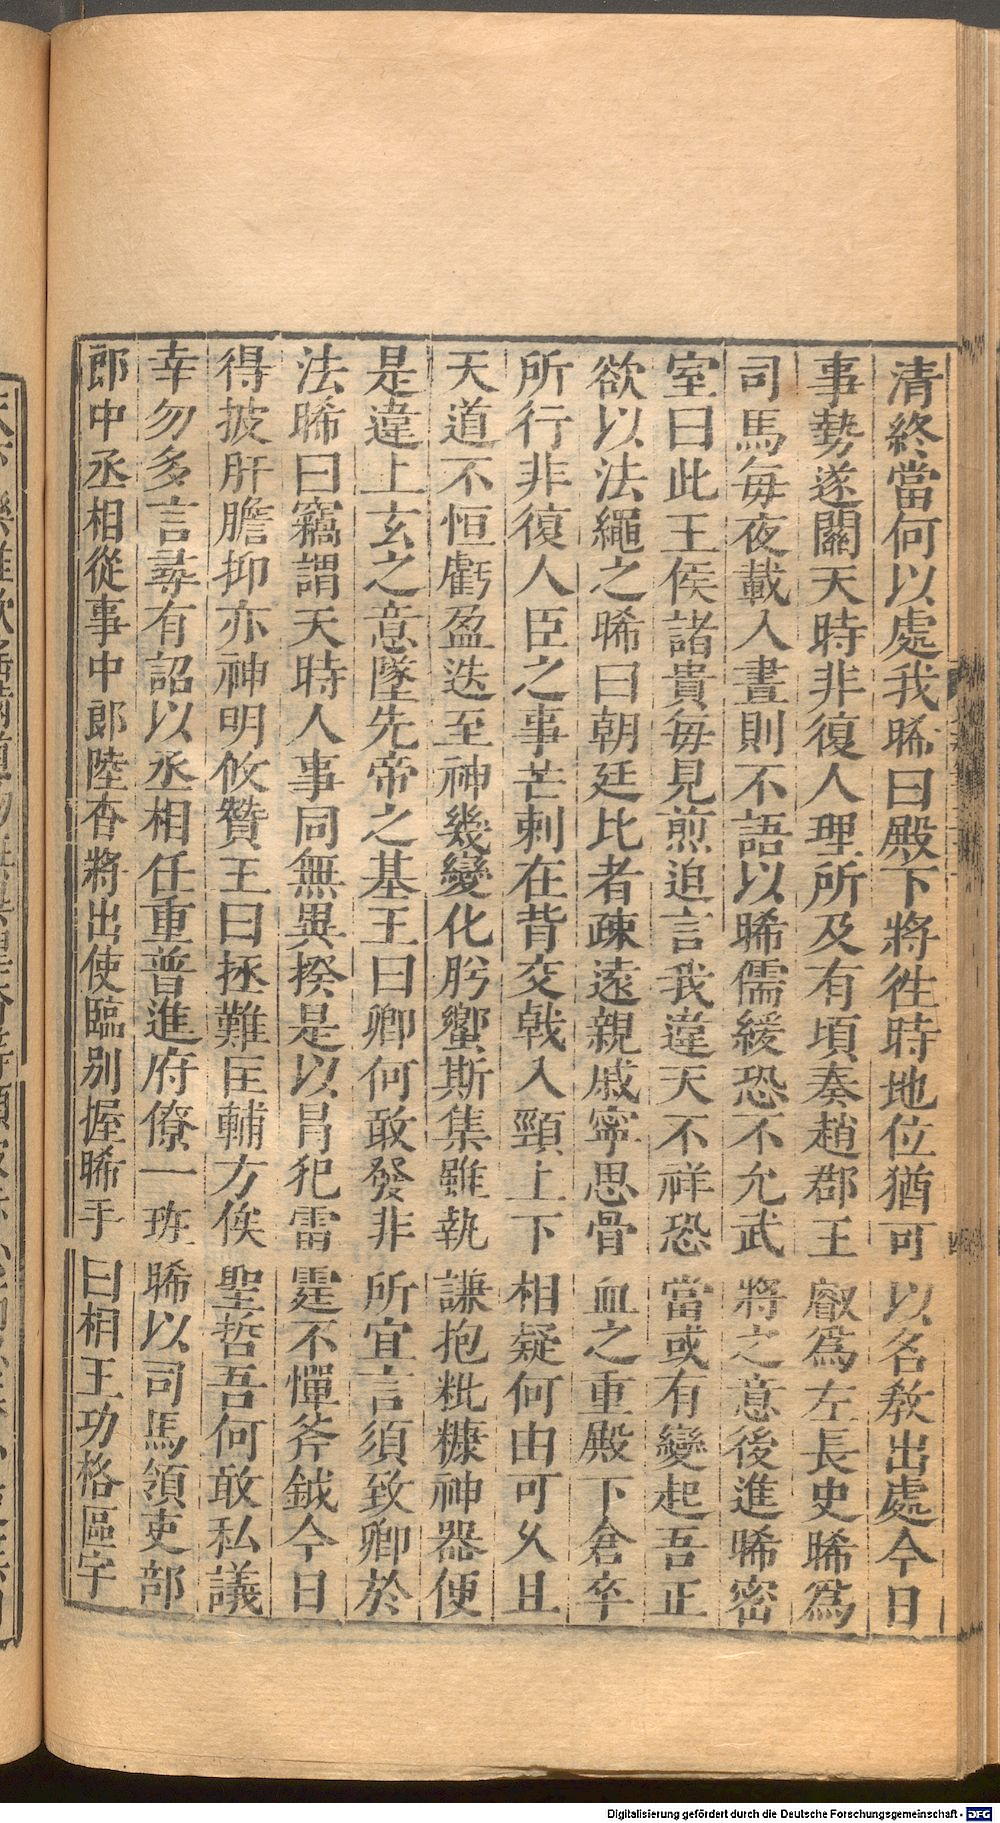 清終當何以處我晞曰殿下將徃時地位猶可以名敎出處今日
事勢遂關天時非復人理所及有頃奏趙郡王叡爲左長史晞爲
司馬每夜載入晝則不語以晞儒緩恐不允武將之意後進晞密
室曰此王侯諸貴每見煎迫言我違天不祥恐當或有變起吾正
欲以法繩之晞曰朝廷比者疎遠親戚寧思骨血之重殿下倉卒
所行非復人臣之事芒刺在背交戟入頸上下相疑何由可久且
天道不恒虧盈迭至神幾變化肹蠁斯集雖執謙挹粃糠神器便
是違上玄之意墜先帝之基王曰卿何敢發非所宜言須致卿於
法晞曰竊謂天時人事同無異揆是以冒犯雷霆不憚斧鉞今日
得披肝膽抑亦神明攸贊王曰拯難匡輔方俟聖哲吾何敢私議
幸勿多言尋有詔以丞相任重普進府僚一班晞以司馬領吏部
郎中丞相從事中郎陸杳將出使臨別握晞手曰相王功格區宇
Digitalisierung gefördert durch die Deutsche Forschungsgemeinschaft - DFG